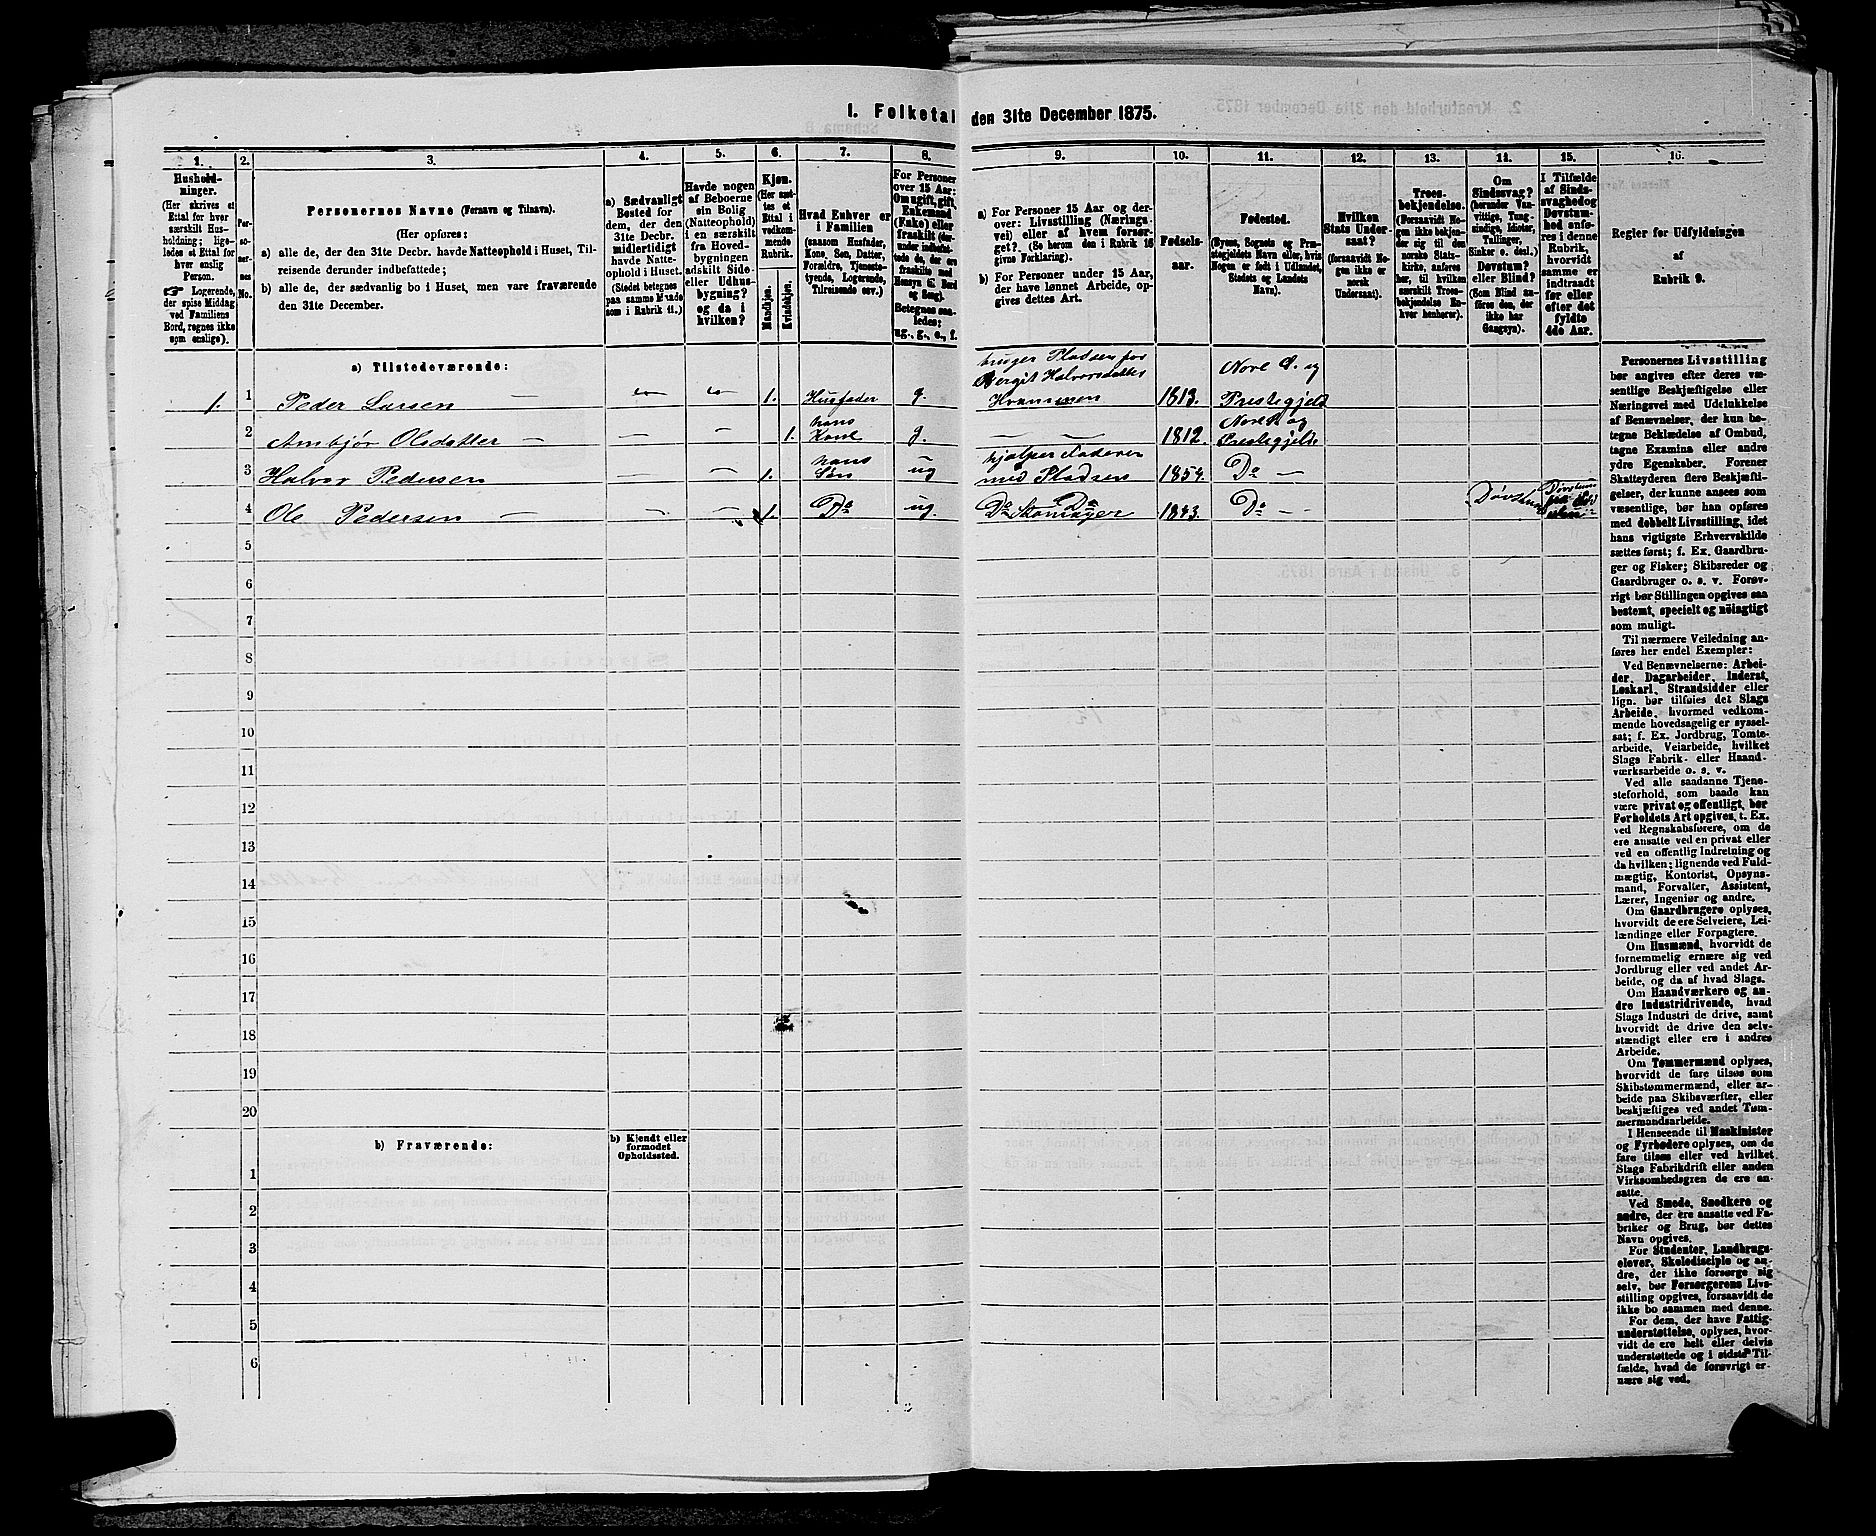 I. Folketal den 31te December 1875.
1. 2. 3. 4. 5. 6. 7. 8. 9. 10. 11. 12. 13. 14. 15. 16.
Hushold-
ninger.
(Her skrives et
Ettal for hver
særskilt Hus-
holdning; lige-
ledes et Ettal for
hver enslig
Person.
☞ Logerende,
der spise Middag
ved Familiens
Bord, regnes ikke
som enslige).
Per-
so-
ner-
nes
No.
Personernes Navne (Fornavn og Tilnavn).
(Her opføres:
a) alle de, der den 31te Decbr. havde Natteophold i Huset, Til-
reisende derunder indbefattede;
b) alle de, der sædvanlig bo i Huset, men vare fraværende
den 31te December.
a) Sædvanligt
Bosted for
dem, der den
31te Decbr.
midlertidigt
havde Natte-
ophold i Huset.
(Stedet betegnes
paa samme Maade
som i Rubrik 11.)
Havde nogen
af Beboerne
sin Bolig
(Natteophold)
i en særskilt
fra Hoved-
bygningen
adskilt Side-
eller Udhus-
bygning?
og da i
hvilken?
Kjøn.
(Her sæt-
tes et
Ettal i
vedkom-
mende
Rubrik.
Mandkjøn.
Kvindekjøn.
Hvad Enhver er
i Familien
(saasom Husfader,
Kone, Søn, Datter,
Forældre, Tjeneste-
tyende, Logerende,
Tilreisende osv.)
For Personer
over 15 Aar:
Om ugift, gift,
Enkemand
(Enke) eller
fraskilt (der-
under indbefat-
tede de, der ere
fraskilte med
Hensyn til Bord
og Seng).
Betegnes saa-
ledes:
ug., g., e., f.
a) For Personer 15 Aar og der-
over: Livsstilling (Nærings-
vei) eller af hvem forsør-
get?. (Se herom den i Rubrik 16
givne Forklaring).
b) For Personer under 15 Aar,
der have lønnet Arbeide, op-
gives dettes Art.
Fødsels-
aar.
Fødested.
(Byens, Sognets og Præ-
stegjeldets Navn eller, hvis
Nogen er født i Udlandet,
Stedets og Landets
Navn).
Hvilken
Stats Under-
saat?
(forsaavidt No-
gen ikke er
norsk
Undersaat).
Troes-
bekjendelse.
(Forsaavidt No-
gen ikke bekjen-
der sig til den
norske Stats-
kirke, anføres
her, til hvilken
særskilt Troes-
bekjendelse En-
hver henhører).
Om
Sindssvag?
(herunder Van-
vittige, Tung-
sindige, Idioter,
Tullinger,
Sinker o. desl.)
Døvstum?
eller Blind?
(Som Blind an-
føres den, der
ikke har
Gangsyn).
I Tilfælde
af Sinds-
svaghed og
Døvstum-
hed anfø-
res i denne
Rubrik,
hvorvidt
samme er
indtraadt
før eller
efter det
fyldte
4de Aar.
Regler for Udfyldningen
af
Rubrik 9.
a) Tilstedeværende:
bruger Pladsen for
Bergit Halvorsdatter
Nore S. og
1. 1 Peder Larsen — — — 1. Husfader g. 1813. Prestegjeld
hans
Nore S. og
2 Ambjør Olsdatter — — — 1. Kone g. — — 1812. Prestegjeld
hans
hjælper Faderen
3 Halvor Pedersen — — 1. Søn ug med Pladsen 1854. Do —
4 Ole Pedersen — — — 1. Do ug. Do Do Skomager 1843. Do — — Døvstum
5
6
7
8
9
10
11
12
13
14
15
16
17
18
19
20
b) Fraværende:
b) Kjendt eller
formodet
Opholdssted.
1
2
3
4
5
6
Personernes Livsstilling
bør angives efter deres væ-
sentlige Beskjæftigelse eller
Næringsvei med Udelukkelse
af Benævnelser, der kun be-
tegne Beklædelse af Ombud,
tagne Examina eller andre
ydre Egenskaber. Forener
Skatteyderen flere Beskjæfti-
gelser, der kunne ansees som
væsentlige, bør han opføres
med dobbelt Livsstilling, idet
hans vigtigste Erhvervskilde
sættes først; f. Ex. Gaardbru-
ger og Fisker; Skibsreder og
Gaardbruger o. s. v. Forøv-
rigt bør Stillingen opgives saa
bestemt, specielt og nøiagtigt
som muligt.
Til nærmere Veiledning an-
føres her endel Exempler:
Ved Benævnelserne: Arbei-
der, Dagarbeider, Inderst,
Løskarl, Strandsidder eller
lign. bør tilføies det Slags
Arbeide, hvormed vedkom-
mende hovedsagelig er syssel-
sat; f. Ex. Jordbrug, Tomte-
arbeide, Veiarbeide, hvilket
Slags Fabrik- eller Haand-
værksarbeide o. s. v.
Ved alle saadanne Tjene-
steforhold, som baade kan
være privat og offentligt, bør
Forholdets Art opgives, t. Ex.
ved Regnskabsførere, om de
ere ansatte ved en privat eller
ved en offentlig Indretning og
da hvilken; lignende ved Fuld-
mægtig, Kontorist, Opsyns-
mand, Forvalter, Assistent,
Lærer, Ingeniør og andre.
Om Gaardbrugere oplyses,
hvorvidt de ere Selveiere, Lei-
lændinge eller Forpagtere.
Om Husmænd, hvorvidt de
fornemmelig ernære sig ved
Jordbrug eller ved andet Ar-
beide, og da af hvad Slags.
Om Haandværkere og an-
dre Industridrivende, hvad
Slags Industri de drive, samt
hvorvidt de drive den selv-
stændigt eller ere i andres
Arbeide.
Om Tømmermænd oplyses,
hvorvidt de fare tilsøs som
Skibstømmermænd, eller ar-
beide paa Skibsværfter, eller
beskjæftiges ved andet Tøm-
mermandsarbeide.
I Henseende til Maskinister
og Fyrbødere oplyses, om de
fare tilsøs eller ved hvilket
Slags Fabrikdrift eller anden
Virksomhedsgren de ere an-
satte.
Ved Smede, Snedkere og
andre, der ere ansatte ved Fa-
briker og Brug, bør dettes
Navn opgives.
For Studenter, Landbrugs-
elever, Skoledisciple og an-
dre, der ikke forsørge sig
selv, bør Forsørgerens Livs-
stilling opgives, forsaavidt de
ikke bo sammen med denne.
For dem, der have Fattig-
understøttelse, oplyses, hvor-
vidt de ere helt eller delvis
understøttede og i sidste Til-
fælde, hvad de forøvrigt er-
nære sig ved.